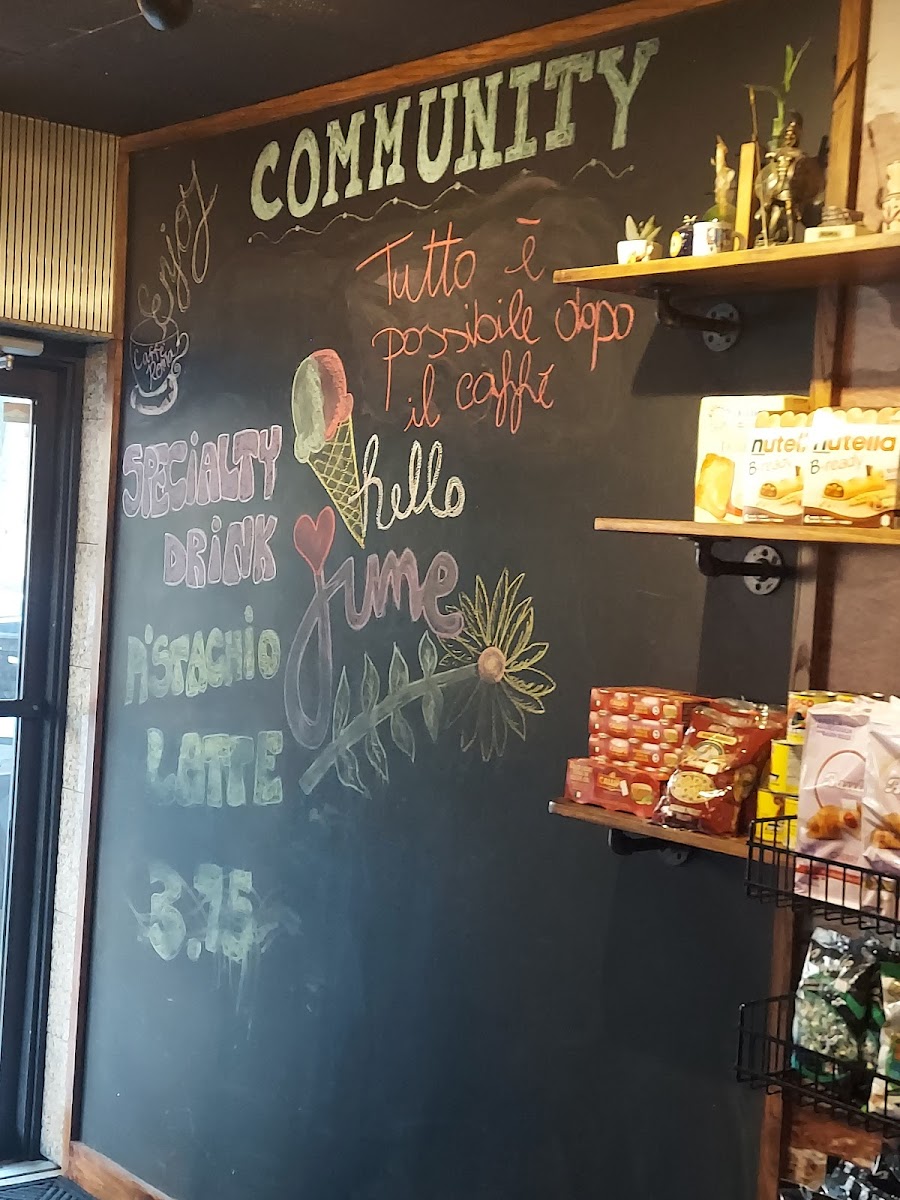 COMMUNITY
enjoy
Caffè
Roma
Tutto è
possibile dopo
il caffè
SPECIALTY
DRINK
PiSTACHIO
LATTE
3.75
hello
june
nutella
B-ready
nutella
B-ready